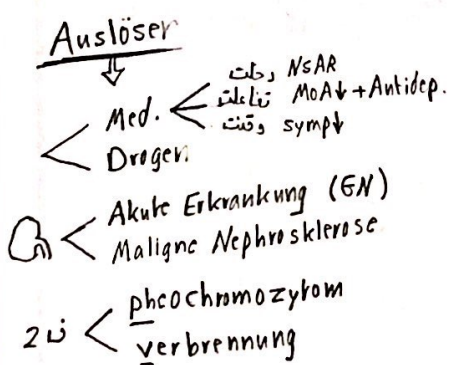 Auslöser
NSAR
Med. MoA↓ + Antidep.
symp↓
Drogen
Akute Erkrankung (GN)
Maligne Nephrosklerose
pheochromozytom
2
verbrennung